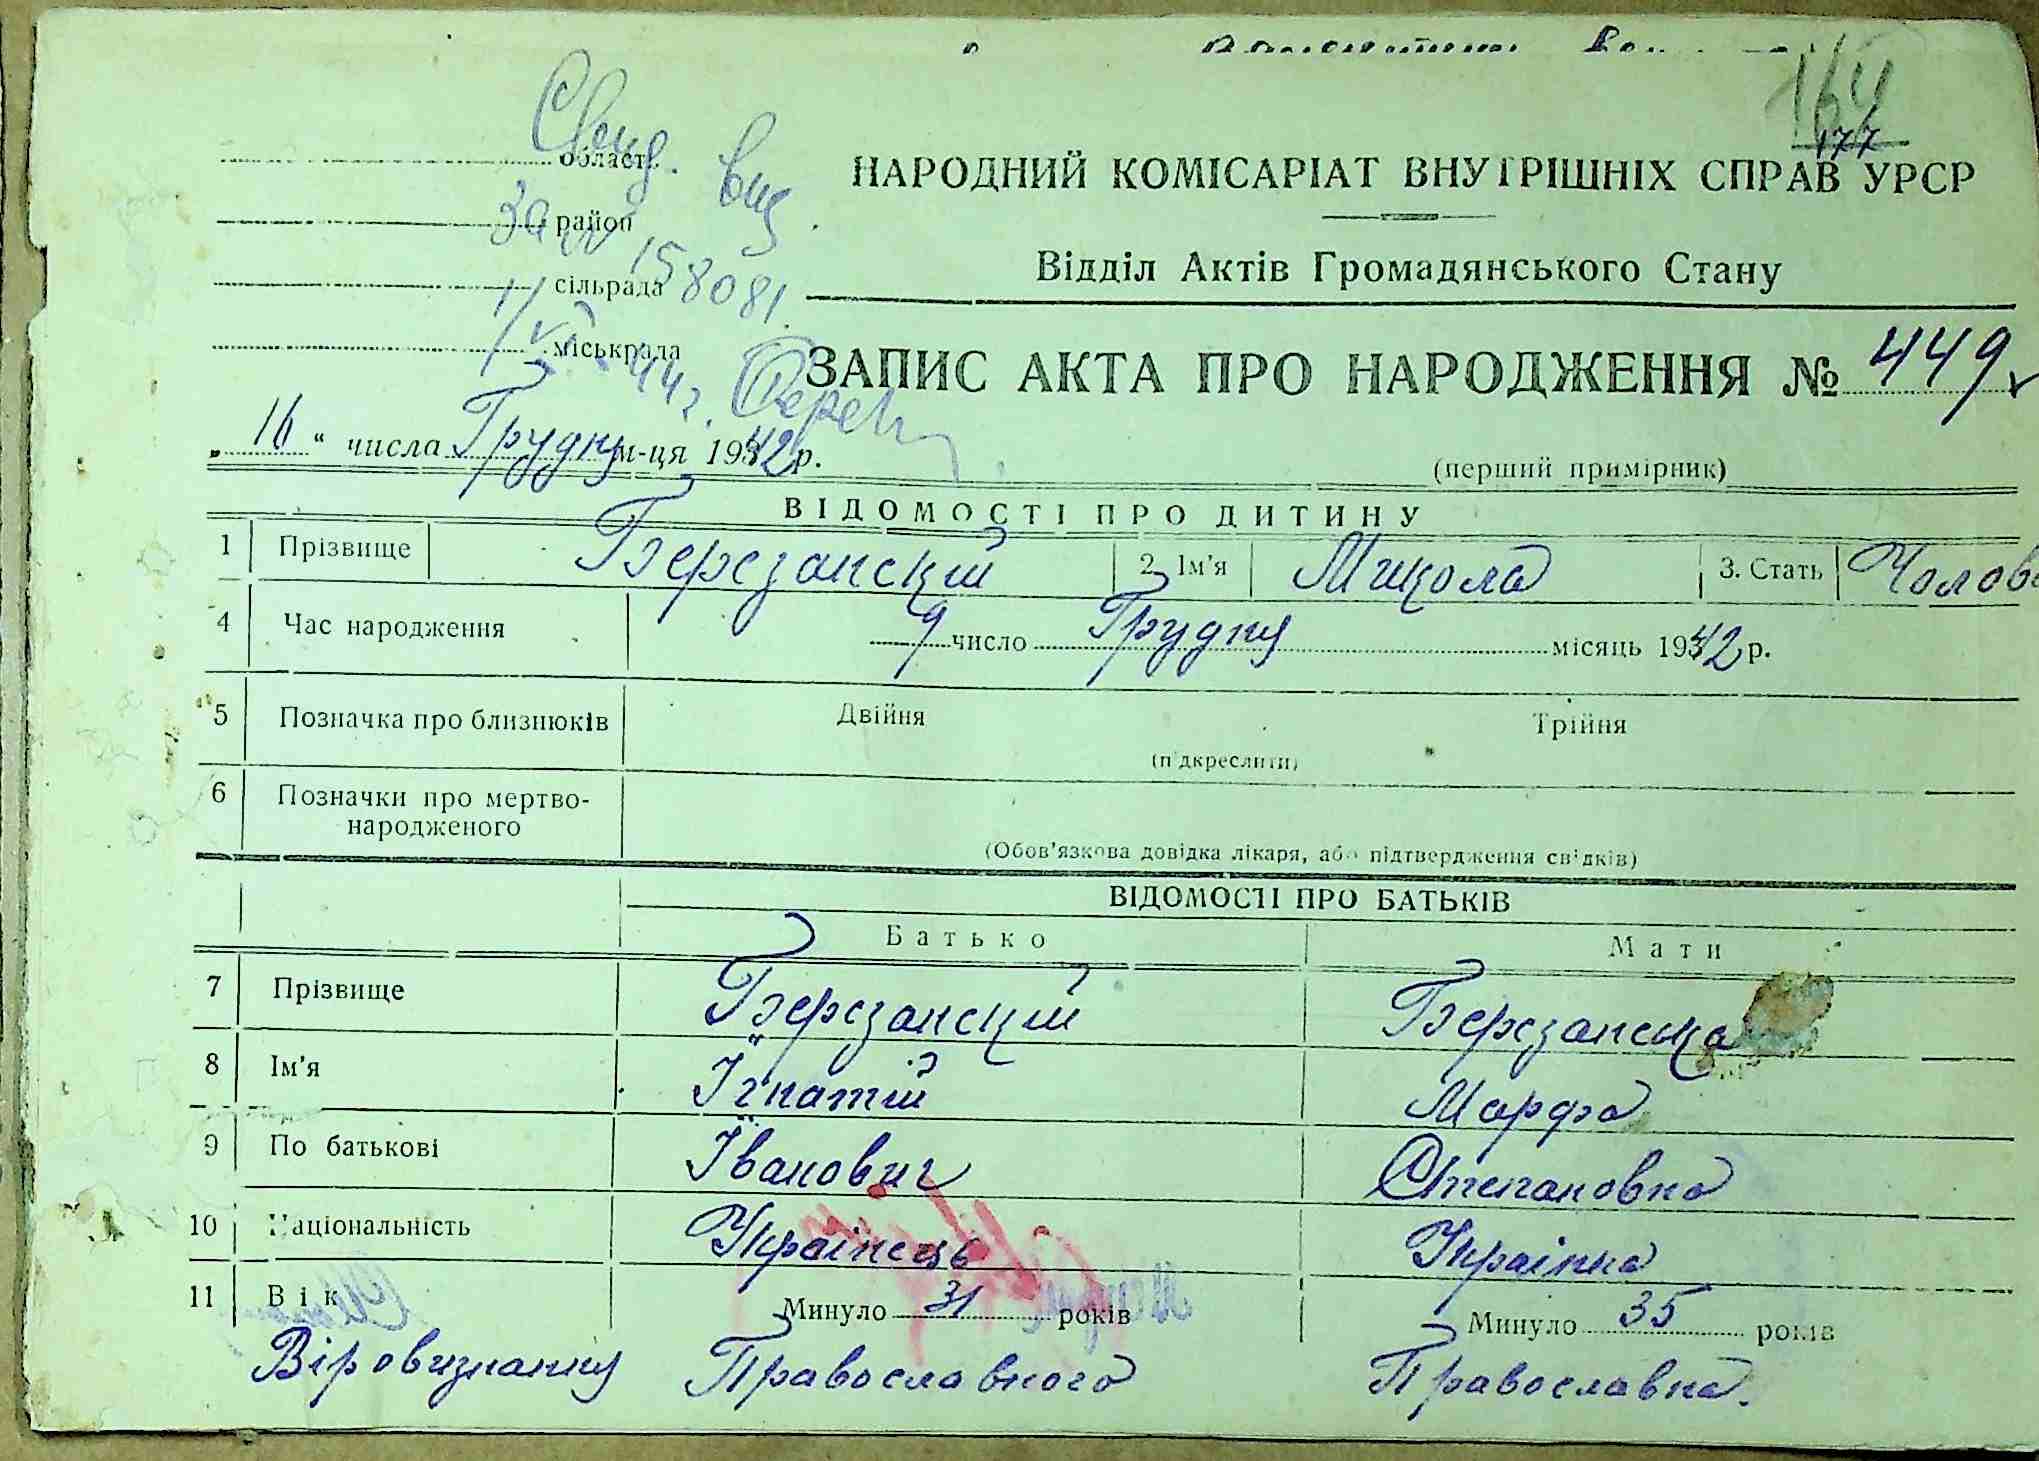 164
177
область
Свид. выд.
район
за № 158081
сільрада
міськрада
НАРОДНИЙ КОМІСАРІАТ ВНУТРІШНІХ СПРАВ УРСР
Відділ Актів Громадянського Стану
ЗАПИС АКТА ПРО НАРОДЖЕННЯ № 449
„16“ числа Грудня м-ця 1942 р.
(перший примірник)
ВІДОМОСТІ ПРО ДИТИНУ
1 Прізвище Березанский 2. Ім'я Микола 3. Стать Чолов
4 Час народження 9 число Грудня місяць 1942 р.
5 Позначка про близнюків Двійня Трійня
(підкреслити)
6 Позначки про мертво-
народженого
(Обов'язкова довідка лікаря, або підтвердження свідків)
ВІДОМОСТІ ПРО БАТЬКІВ
Батько Мати
7 Прізвище Березанский Березанська
8 Ім'я Ігнатій Марфа
9 По батькові Іванович Степановна
10 Національність Українець Українка
11 Вік Минуло 31 років Минуло 35 років
Віровизнання Православного Православна.